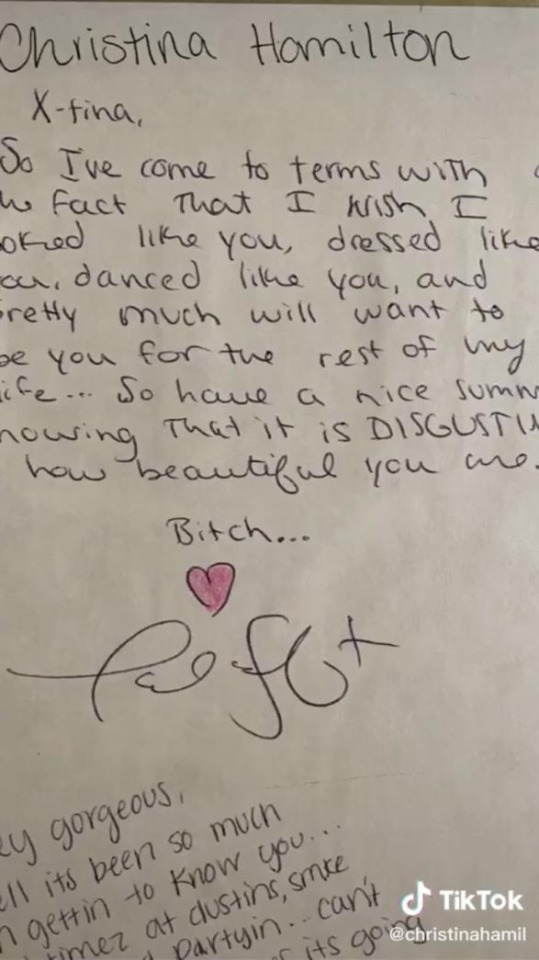 Christina Hamilton
X-tina,
So I've come to terms with
he fact that I wish I
ooked like you, dressed like
ou, danced like you, and
pretty much will want to
be you for the rest of my
life... So have a nice summ
nowing that it is DISGUSTIN
how beautiful you are.
Bitch...
ey gorgeous,
ell its been so much
n gettin to know you...
timez at dustins, smke
partyin.. can't
its going
TikTok
@christinahamil